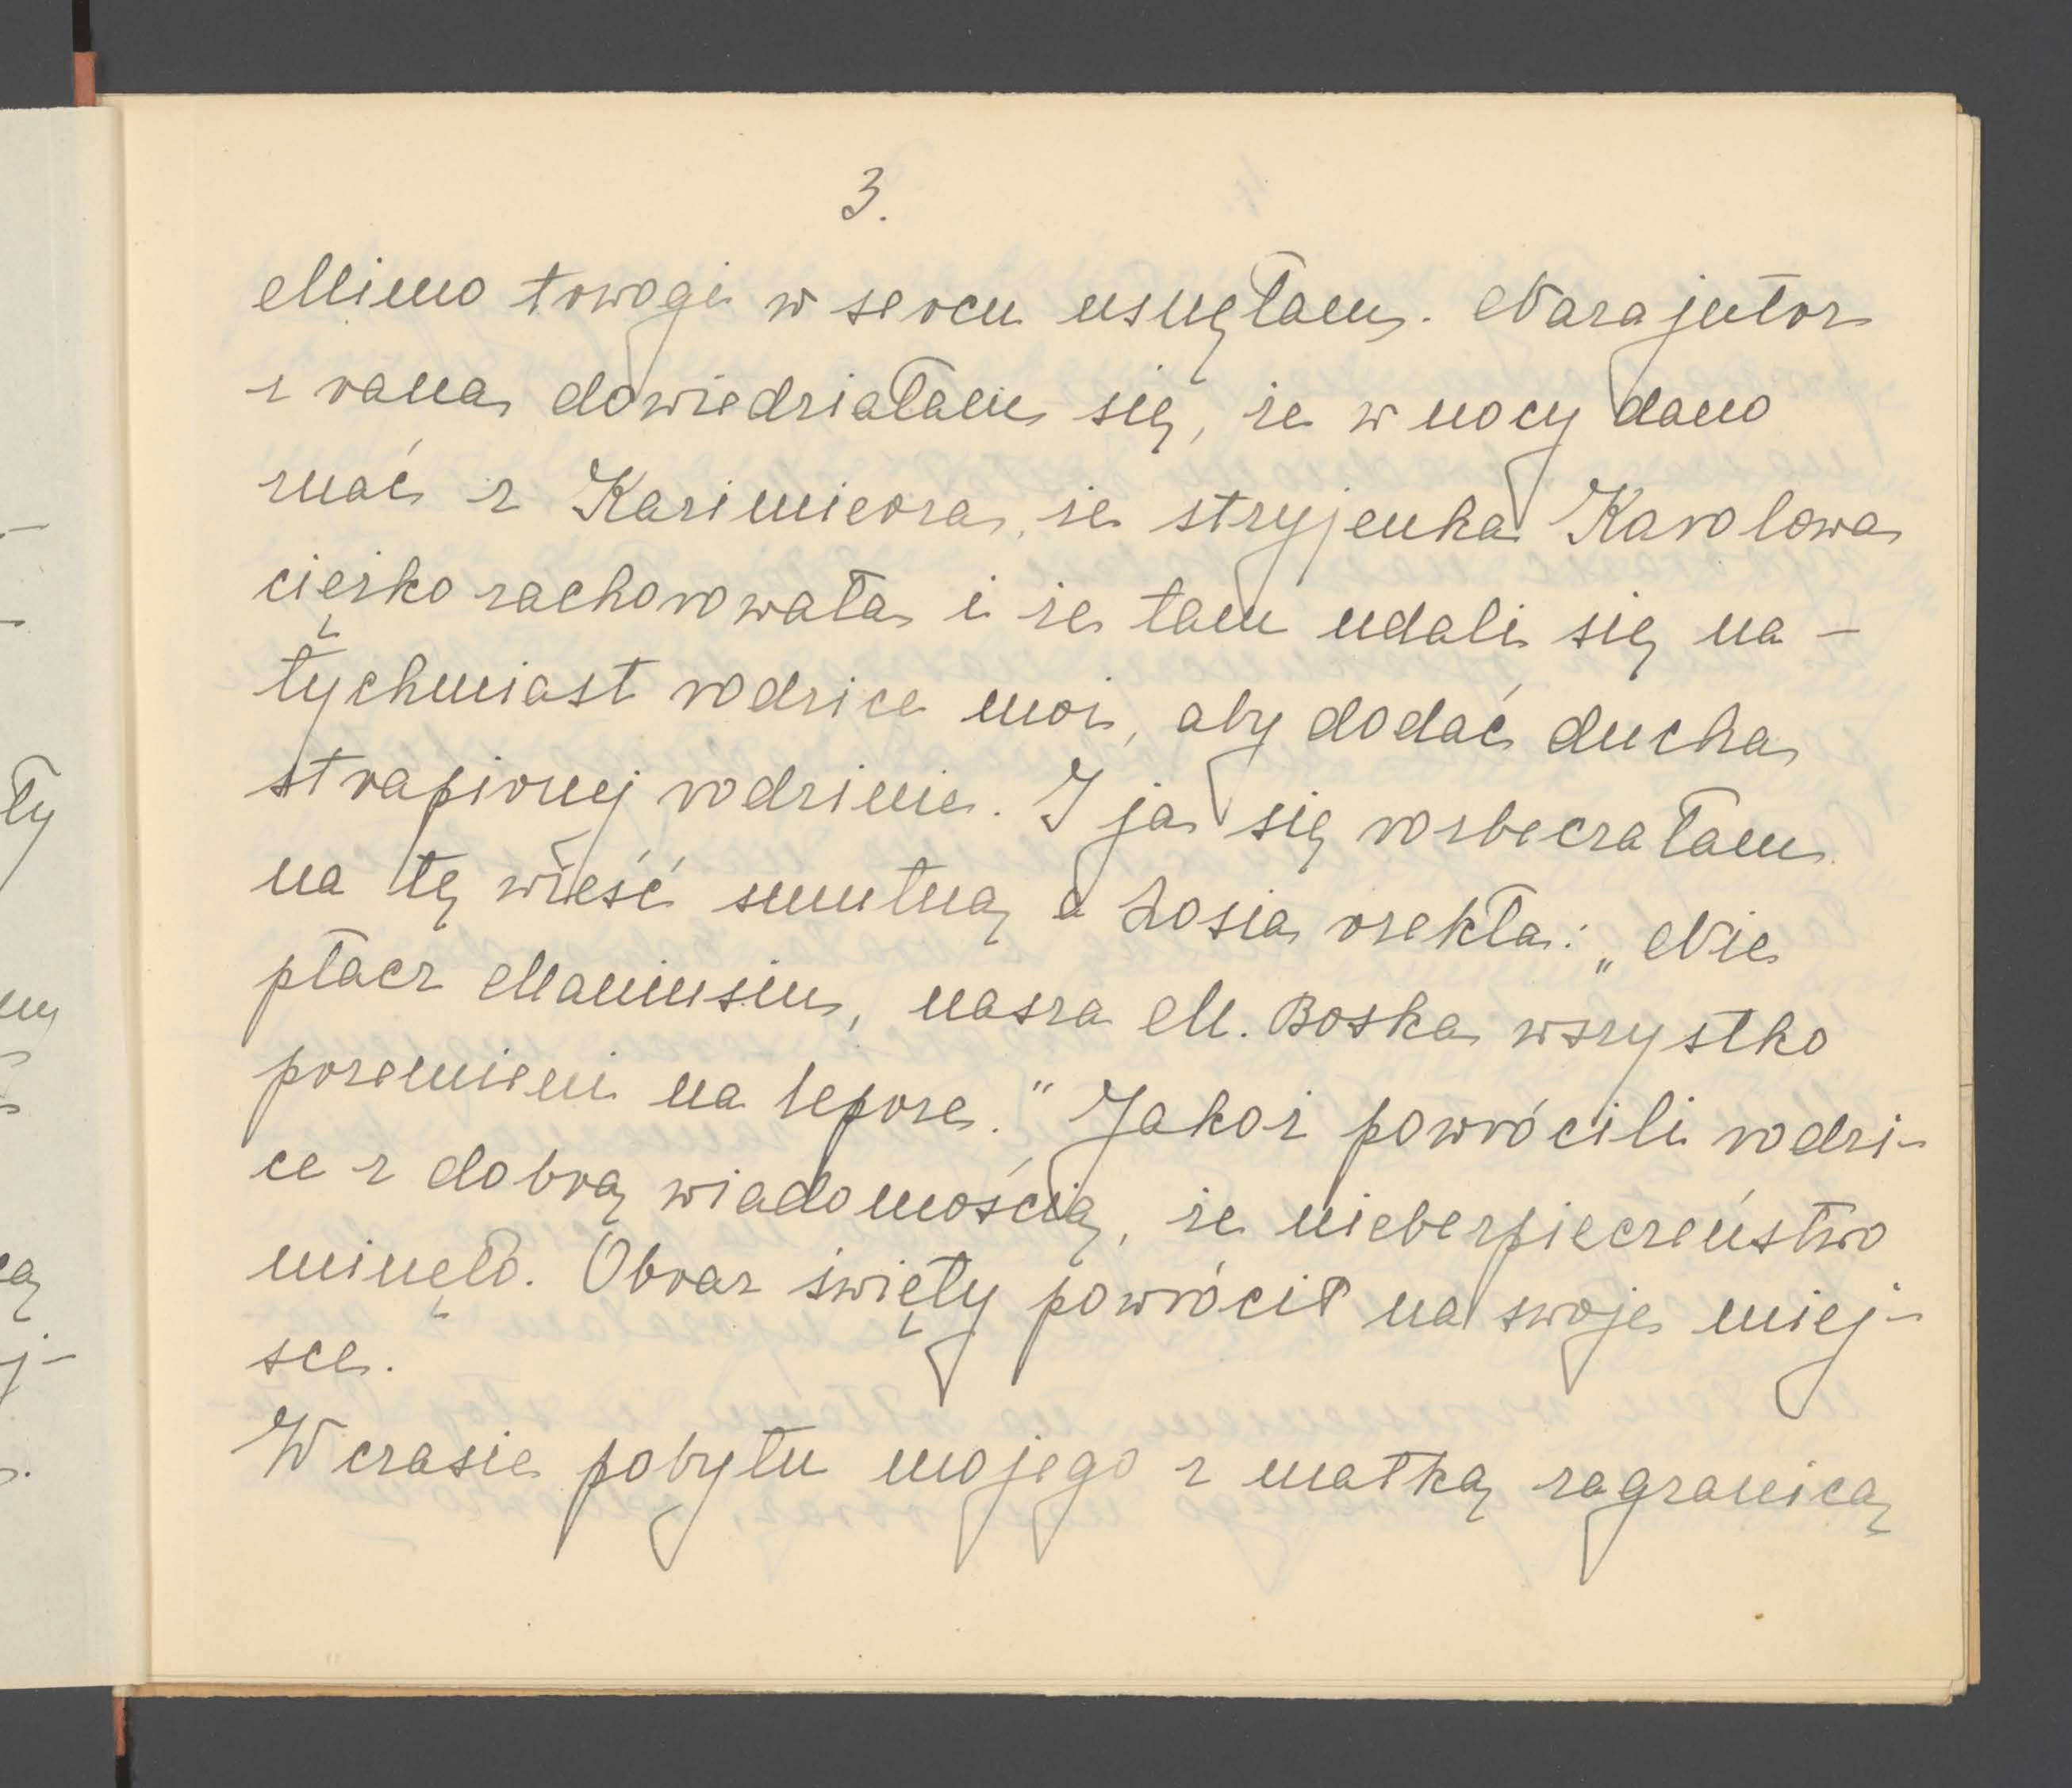 3.
Mimo trwogi w sercu usnęłam. Nazajutrz
z rana dowiedziałam się, że w nocy dano
znać z Kazimierza, że stryjenka Karolowa
ciężko zachorowała i że tam udali się na-
tychmiast rodzice moi, aby dodać ducha
strapionej rodzinie. I ja się rozbeczałam
na tę wieść smutną a Zosia rzekła: „Nie
płacz Maniusiu, nasza M. Boska wszystko
przemieni na lepsze." Jakoż powrócili rodzi-
ce z dobrą wiadomością, że niebezpieczeństwo
minęło. Obraz święty powrócił na swoje miej-
sce.
W czasie pobytu mojego z matką zagranicą